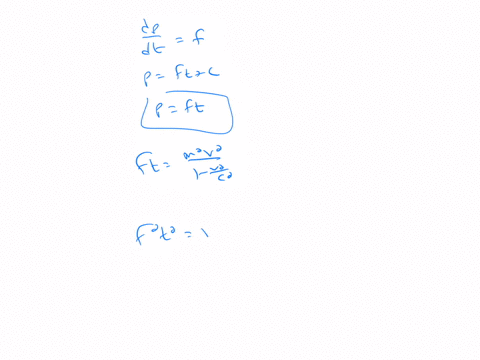 dp/dt = f
p = ft + c
p = ft
ft = m²v² / 1 - v²/c²
f²t² =